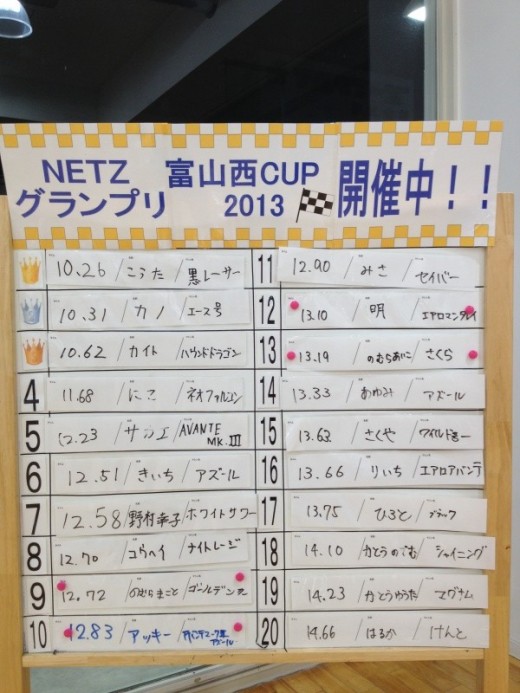 NETZ 富山西CUP
グランプリ 2013 開催中!!
10.26 / こうた / 黒レーサー
10.31 / カノ / エース号
10.62 / カイト / ハウンドドラゴン
4 11.68 / にこ / ネオファルコン
5 12.23 / サカエ / AVANTE MK.III
6 12.51 / きいち / アズール
7 12.58 / 野村幸子 / ホワイトサワー
8 12.70 / コウヘイ / ナイトレージ
9 12.72 / のむらまこと / ゴールデン
10 12.83 / アッキー /
11 12.90 / みさ / セイバー
12 13.10 / 明 / エアロマンタレイ
13 13.19 / のむらあいこ / さくら
14 13.33 / あゆみ / アズール
15 13.63 / さくや / ワイルド
16 13.66 / りいち / エアロアバンテ
17 13.75 / ひろと / ブラック
18 14.10 / かとうのぞむ / シャイニング
19 14.23 / かとうゆうた / マグナム
20 14.66 / はるか / けんと